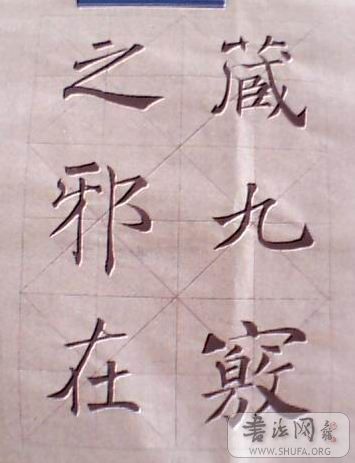 蔵九竅
之邪在
书法网
WWW.SHUFA.ORG